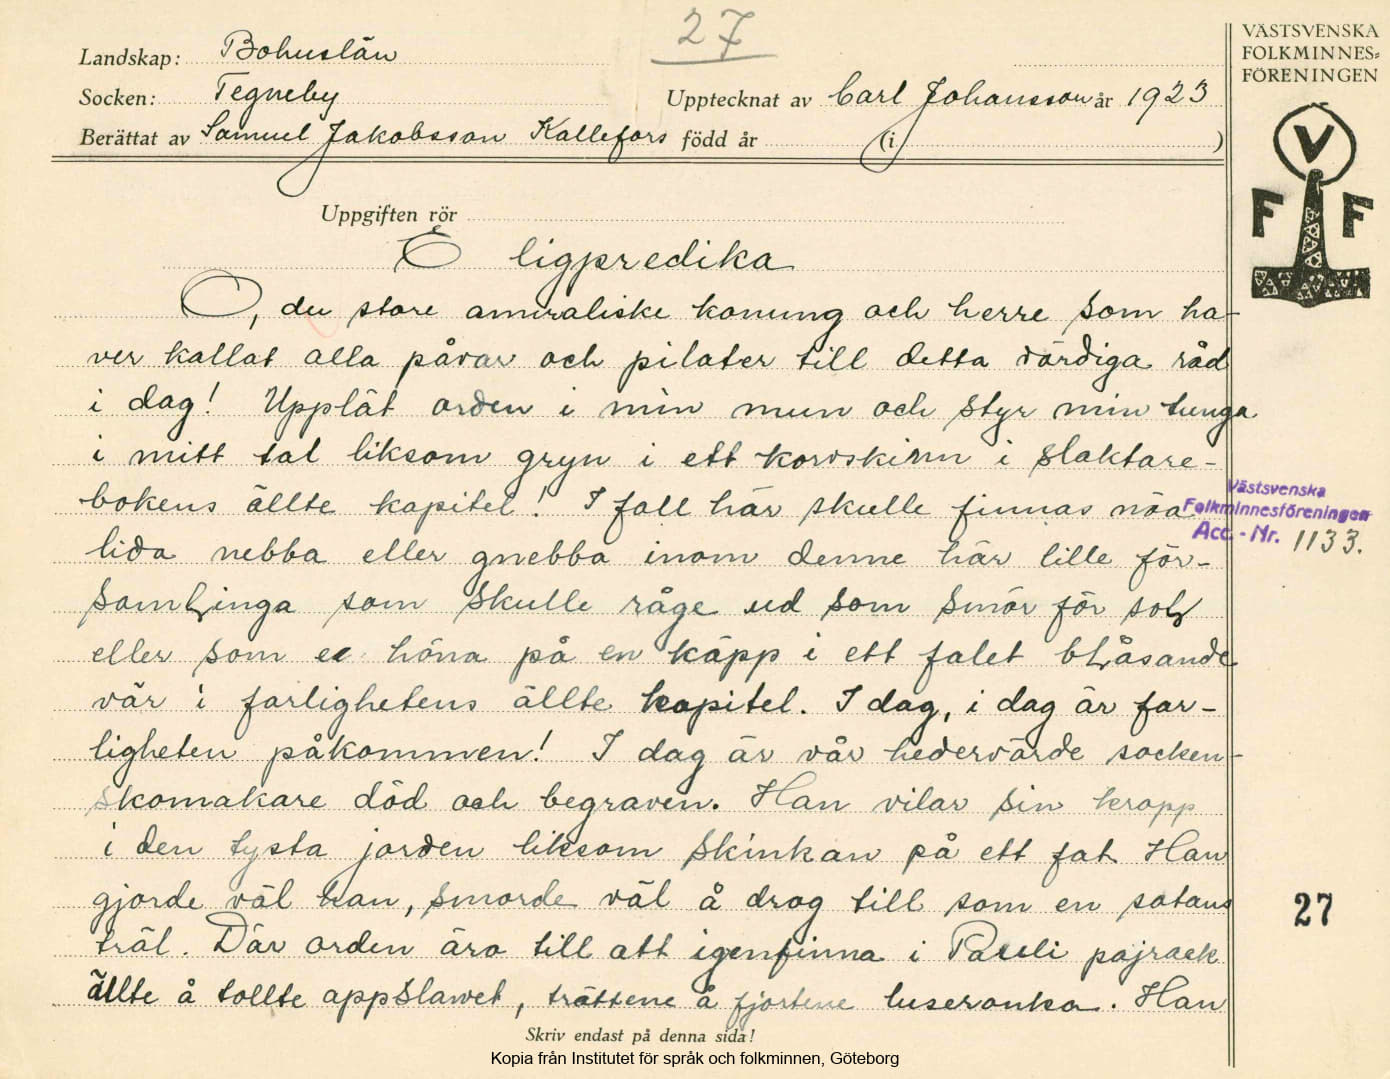 27
Landskap: Bohuslän
Socken: Tegneby
Upptecknat av Carl Johansson år 1923
Berättat av Samuel Jakobsson Kallefors född år (i )
VÄSTSVENSKA
FOLKMINNES-
FÖRENINGEN
V
F F
Uppgiften rör
E ligpredika
O, du store amiraliske konung och herre som ha-
ver kallat alla påvar och pilater till detta värdiga råd
i dag! Upplåt orden i min mun och styr min tunga
i mitt tal liksom gryn i ett korvskinn i slaktare-
bokens ällte kapitel! I fall här skulle finnas nöa
lida nebba eller gnebba inom denne här lille för-
samLinga som skulle råge ud som smör för soL
eller som ee höna på en käpp i ett falet bLåsande
vär i farlighetens ällte kapitel. I dag, i dag är far-
ligheten påkommen! I dag är vår hedervärde socken-
skomakare död och begraven. Han vilar sin kropp
i den tysta jorden liksom skinkan på ett fat Han
gjorde väl han, smorde väl å drog till som en satans
träl. Där orden äro till att igenfinna i Pauli pajrack
ällte å tollte appslawet, trättene å fjortene luseranka. Han
Västsvenska
Folkminnesföreningen
Acc.-Nr. 1133.
27
Skriv endast på denna sida!
Kopia från Institutet för språk och folkminnen, Göteborg